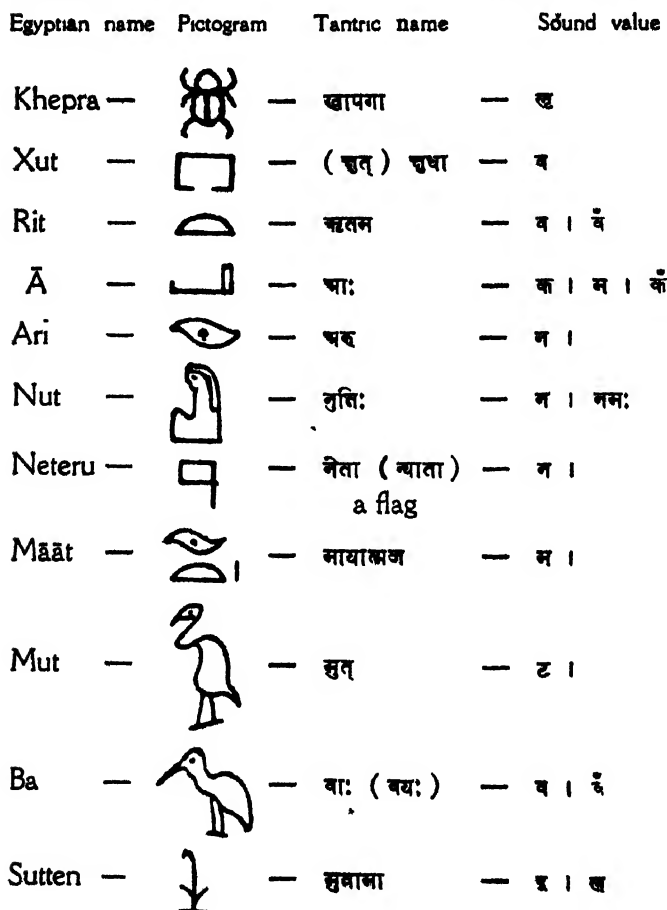 Egyptian name Pictogram Tantric name Sound value
Khepra — — खापगा —
Xut — — —  व
Rit — — ऋतम — व । वँ
Ā — — — क । म । कँ
Ari — — — न ।
Nut — — नुत्तिः — न । नमः
Neteru — — नेता ( न्याता ) — न ।
a flag
Māāt — — मायात्मज — म ।
Mut — — मुत् — ट ।
Ba — — वाः ( वयः ) — व । वँ
Sutten — — सुवामा —